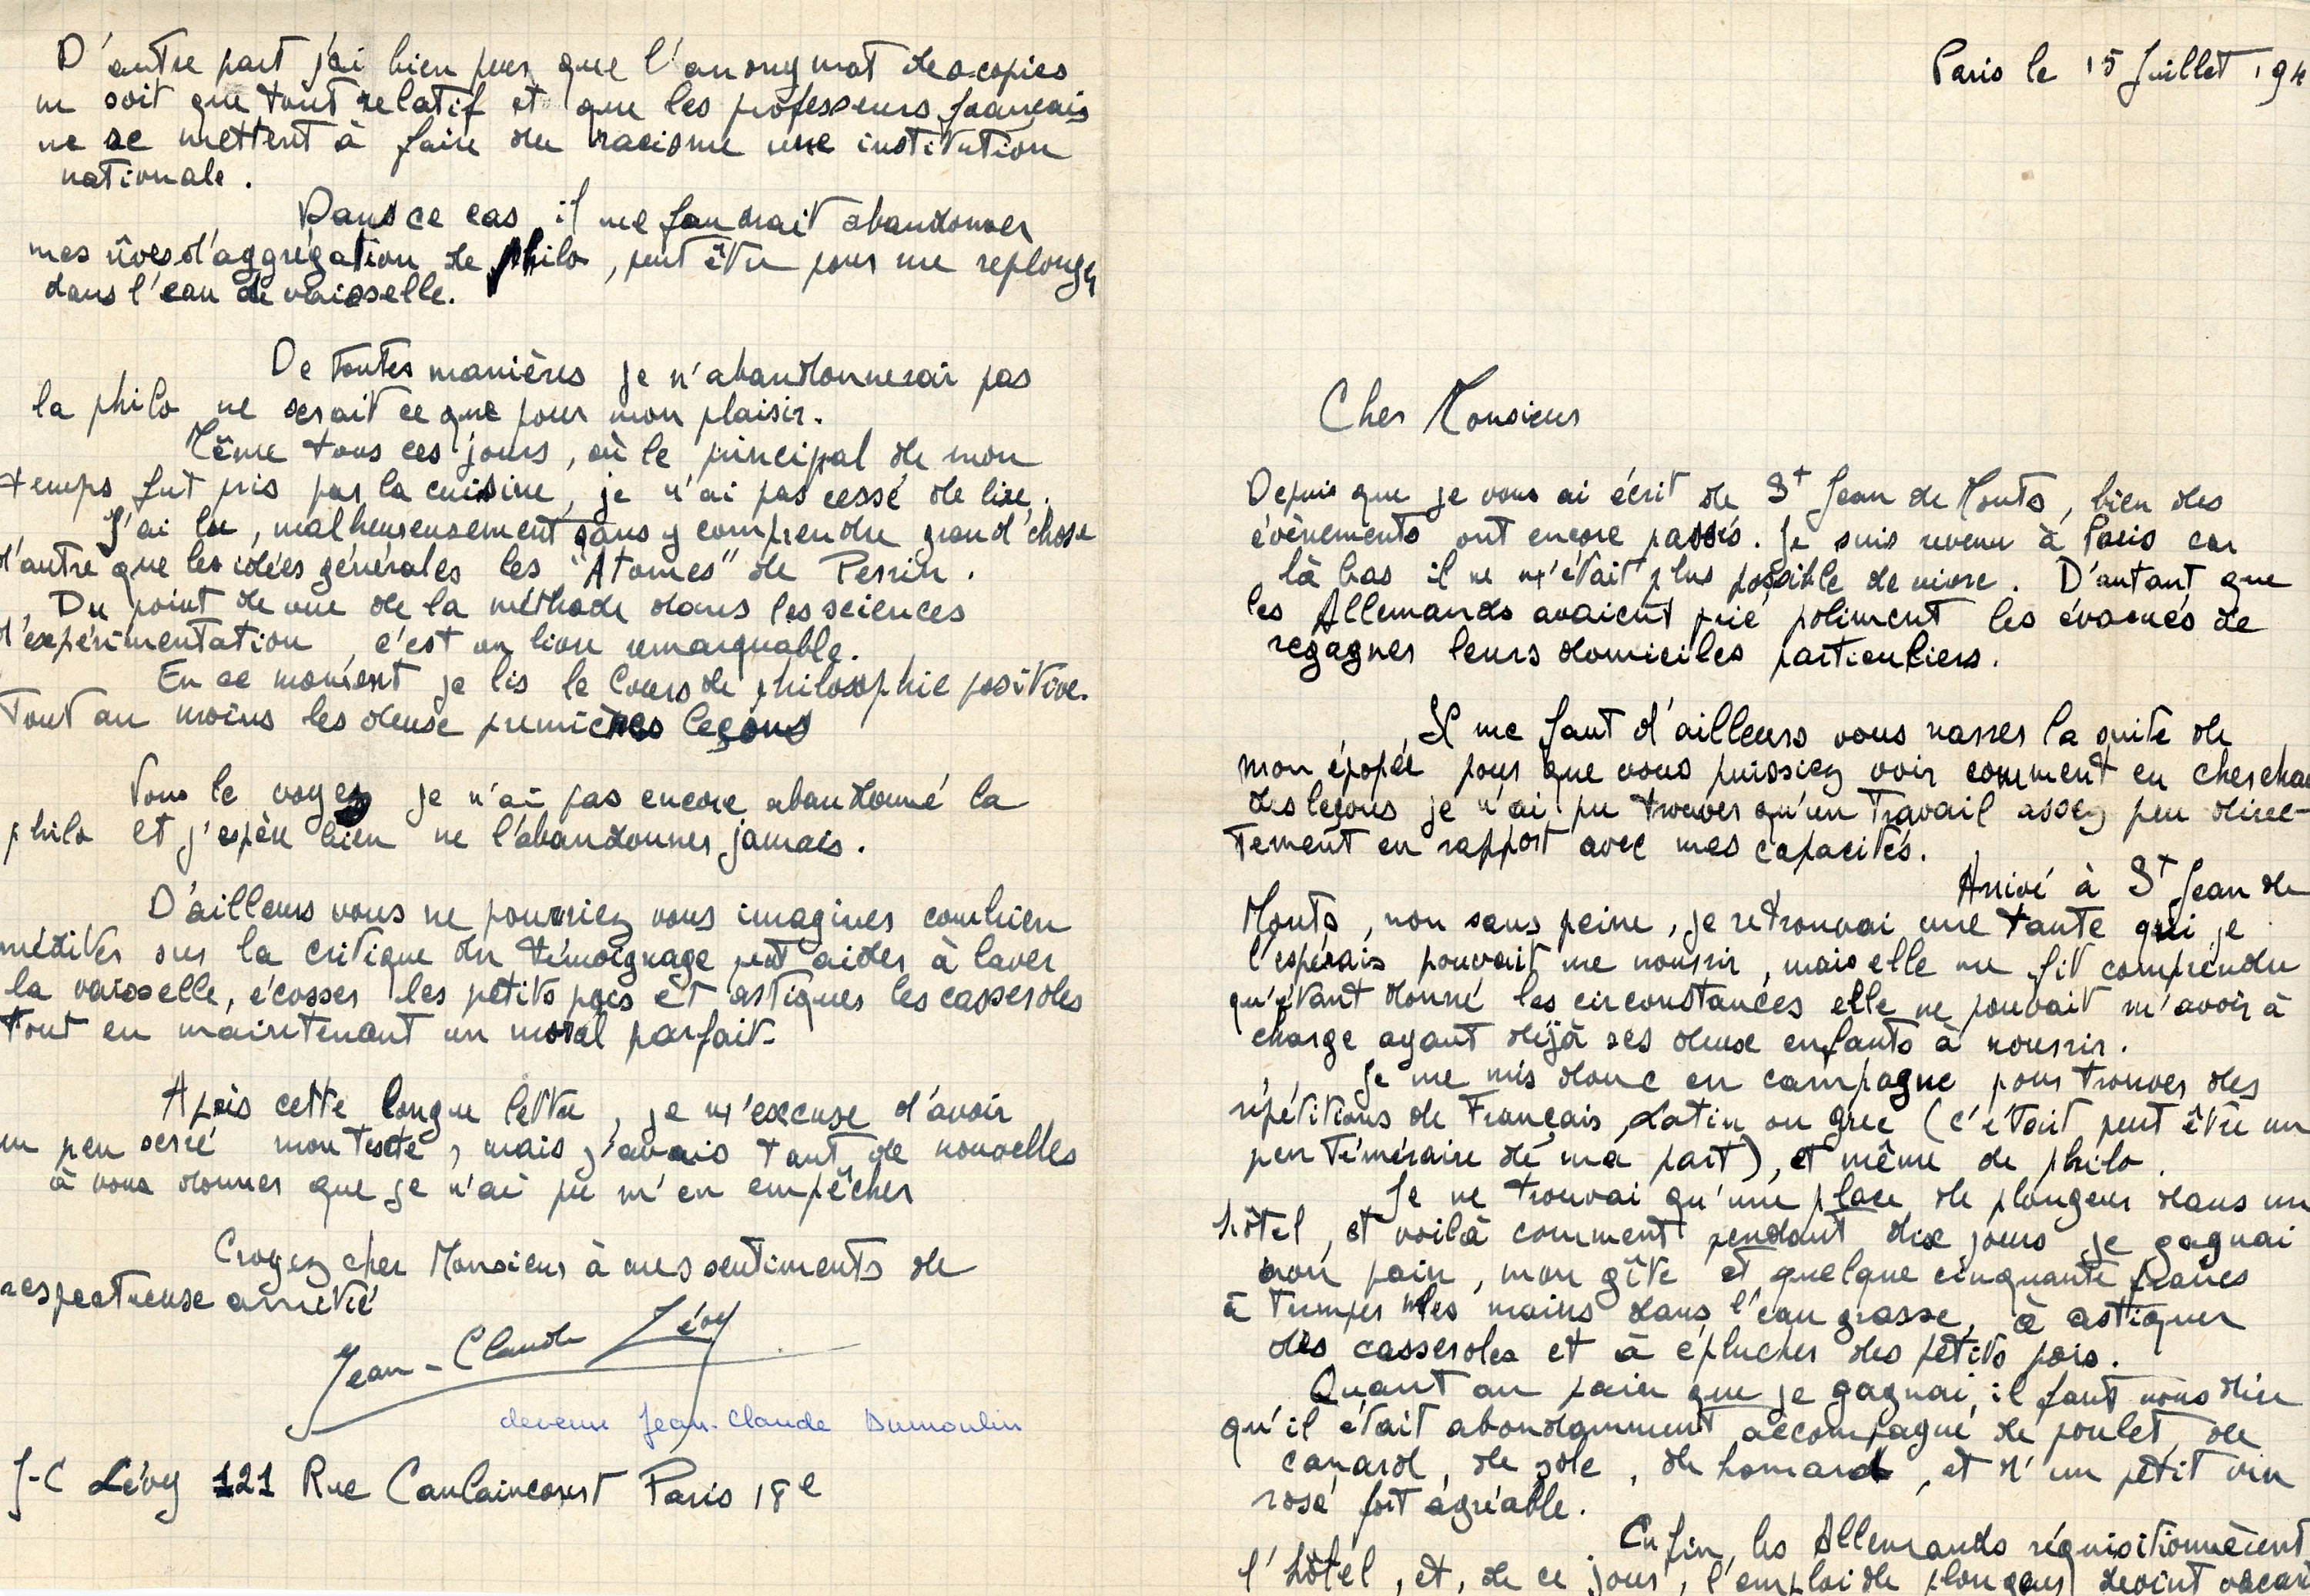 D'autre part j'ai bien peur que l'anonymat des copies
ne soit que tout relatif et que les professeurs français
ne se mettent à faire du racisme une institution
nationale.
Dans ce cas il me faudrait abandonner
mes rêves d'aggrégation de philo, peut être pour me replonger
dans l'eau de vaisselle.
De toutes manières je n'abandonnerai pas
la philo ne serait ce que pour mon plaisir.
Même tous ces jours, où le principal de mon
temps fut pris par la cuisine, je n'ai pas cessé de lire.
J'ai lu, malheureusement sans y comprendre grand'chose
d'autre que les idées générales les "Atomes" de Perrin.
Du point de vue de la méthode dans les sciences
d'expérimentation, c'est un livre remarquable.
En ce moment je lis le Cours de philosophie positive.
Tout au moins les deux premières leçons
Vous le voyez je n'ai pas encore abandonné la
philo et j'espère bien ne l'abandonner jamais.
D'ailleurs vous ne pourriez vous imaginer combien
méditer sur la critique du témoignage peut aider à laver
la vaisselle, écosser les petits pois et astiquer les casseroles
tout en maintenant un moral parfait.
Après cette longue lettre, je m'excuse d'avoir
un peu serré mon texte, mais j'avais tant de nouvelles
à vous donner que je n'ai pu m'en empêcher
Croyez cher Monsieur à mes sentiments de
respectueuse amitié
Jean-Claude Lévy
devenu Jean-Claude Dumoulin
J-C Lévy 121 Rue Caulaincourt Paris 18e
Paris le 15 Juillet 194
Cher Monsieur
Depuis que je vous ai écrit de St Jean de Monts, bien des
évènements ont encore passés. Je suis revenu à Paris car
là bas il ne m'était plus possible de vivre. D'autant que
les Allemands avaient prié poliment les évacués de
regagner leurs domiciles particuliers.
Il me faut d'ailleurs vous narrer la suite de
mon épopée pour que vous puissiez voir comment en cherchan
des leçons je n'ai pu trouver qu'un travail assez peu direc-
tement en rapport avec mes capacités.
Arrivé à St Jean de
Monts, non sans peine, je retrouvai une tante qui je
l'espérais pouvait me nourrir, mais elle me fit comprendre
qu'étant donné les circonstances elle ne pouvait m'avoir à
charge ayant déjà ses deux enfants à nourrir.
Je me mis donc en campagne pour trouver des
répétitions de Français, Latin ou grec (c'était peut être un
peu téméraire de ma part), et même de philo.
Je ne trouvai qu'une place de plongeur dans un
hôtel, et voilà comment pendant dix jours je gagnai
mon pain, mon gîte et quelque cinquante francs
à tremper mes mains dans l'eau grasse, à astiquer
des casseroles et à éplucher des petits pois.
Quant au pain que je gagnai, il faut vous dire
qu'il était abondamment accompagné de poulet, de
canard, de sole, de homard, et d'un petit vin
rosé fort agréable.
Enfin, les Allemands réquisitionnèrent
l'hôtel, et, de ce jour, l'emploi de plongeur devint vacan